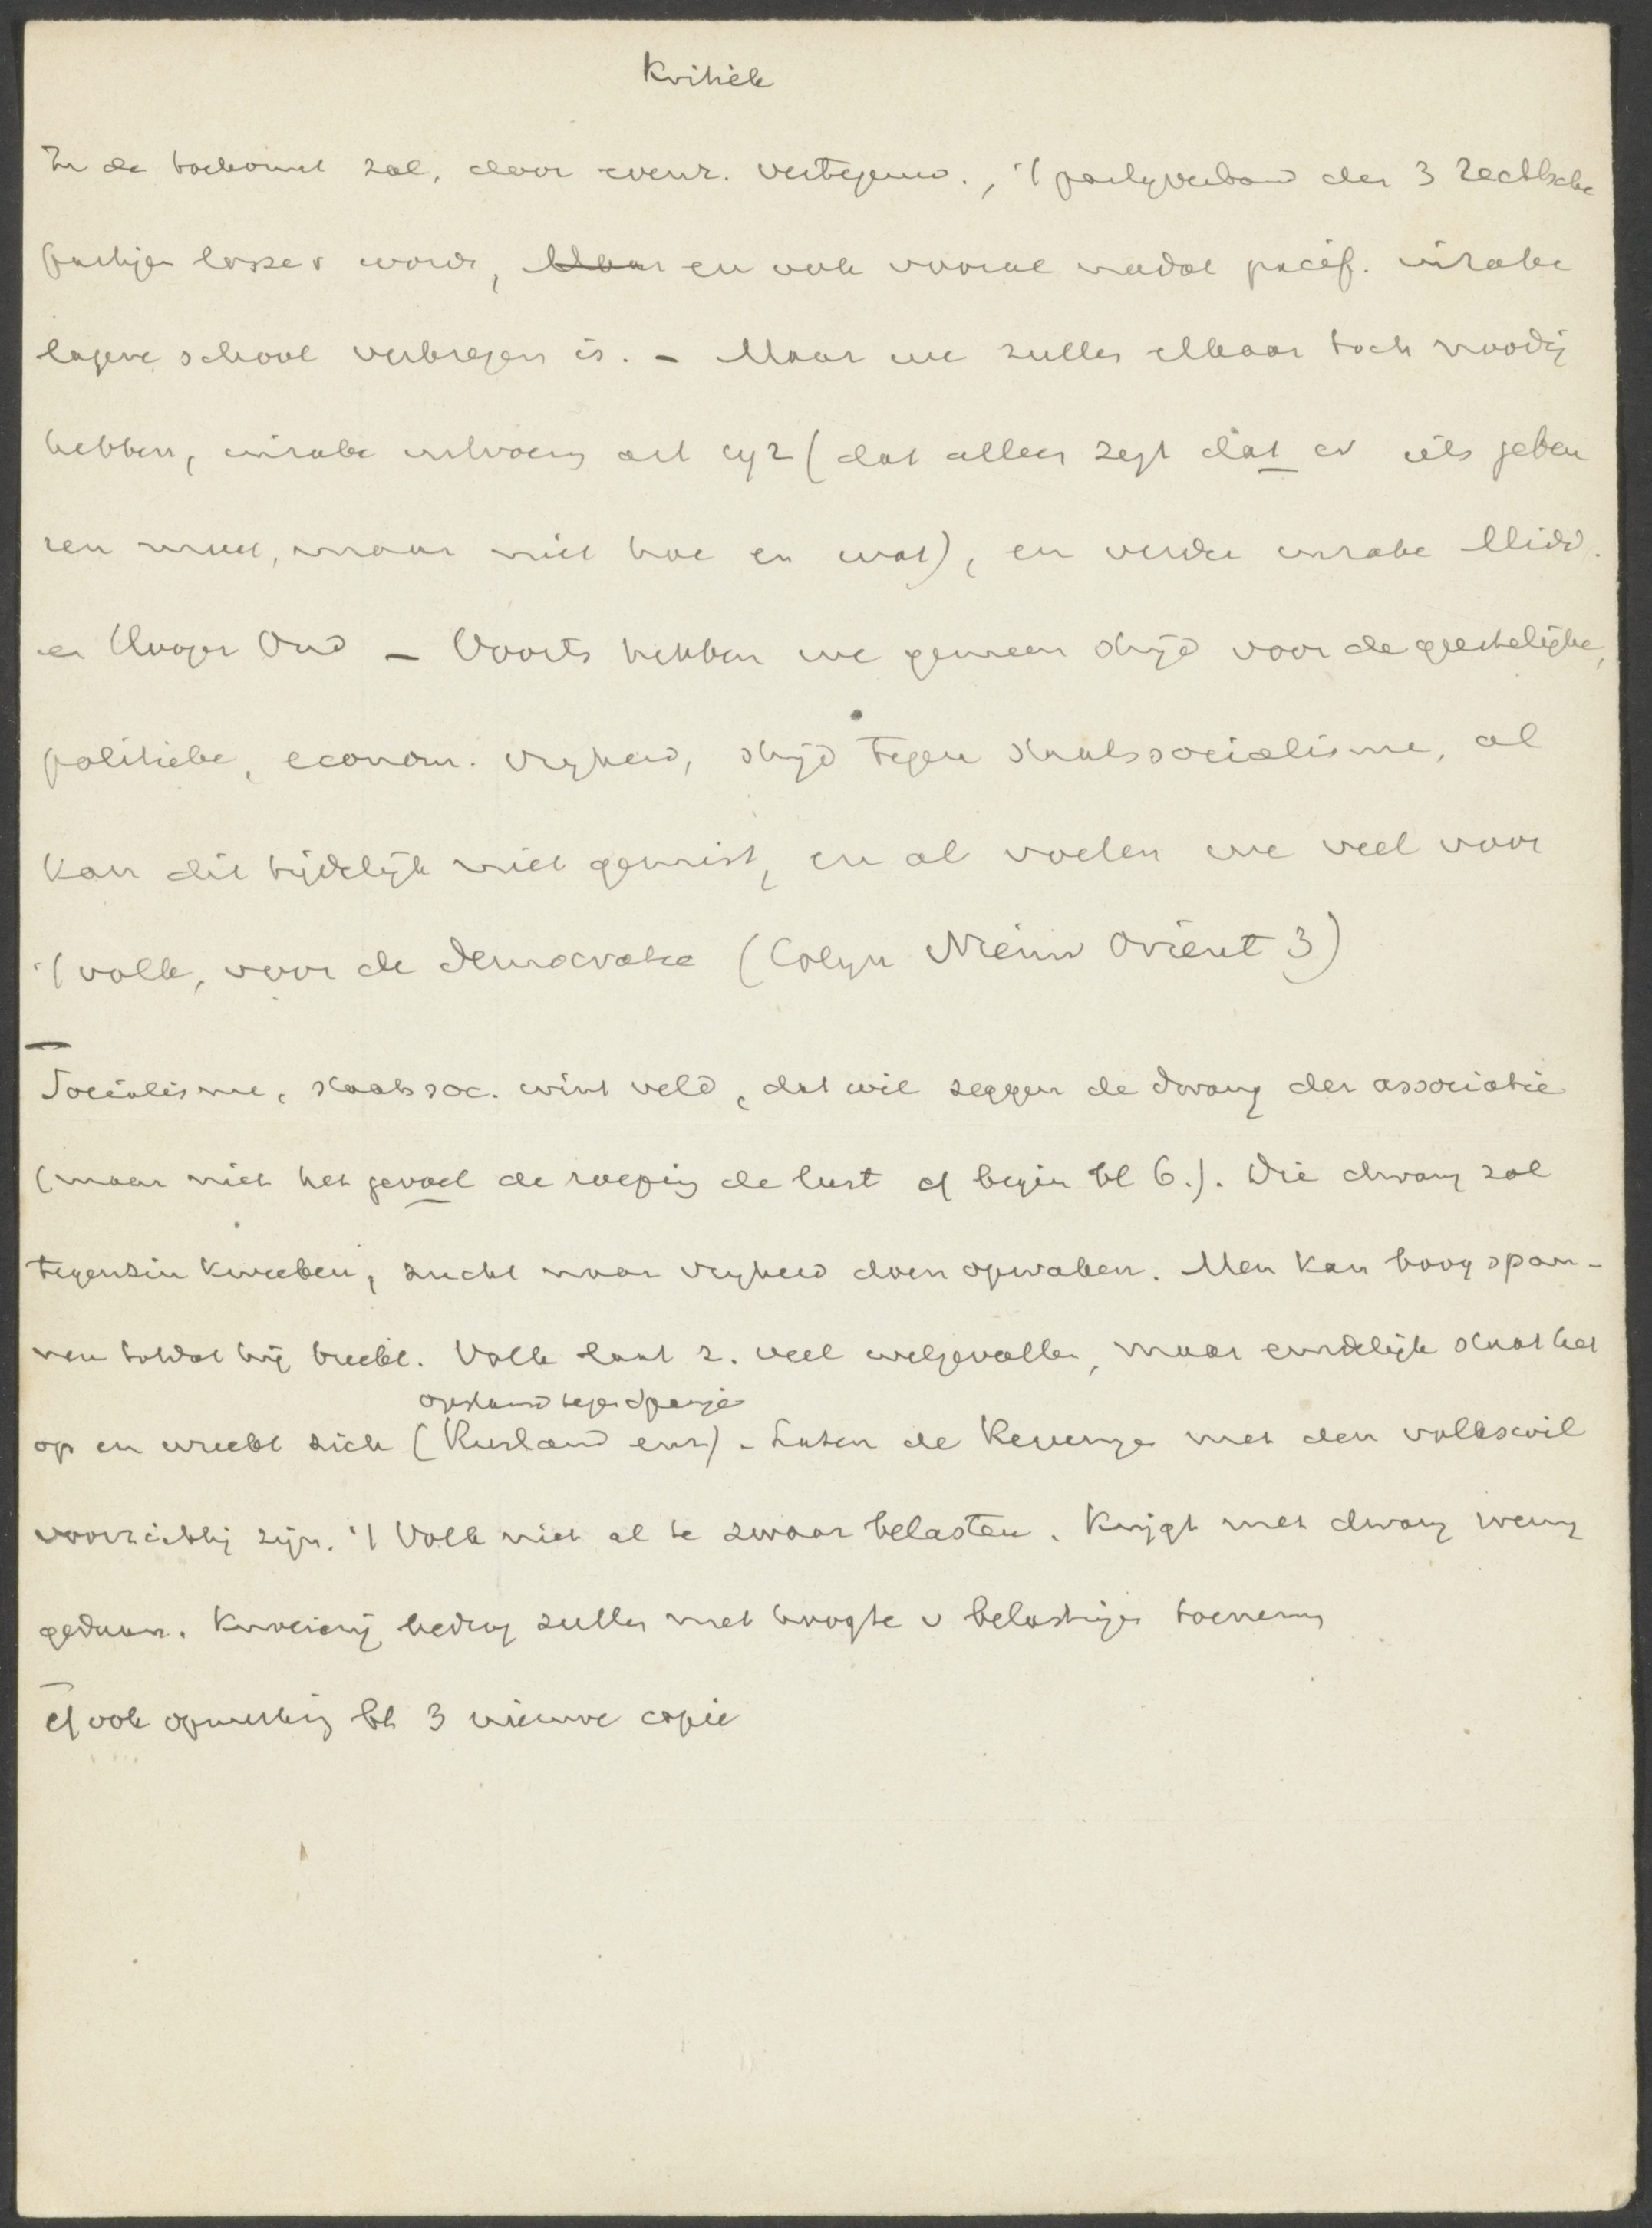 Kritiek
In de toekomst zal, door evenr. vertegenw., 't partijverband der 3 rechtsche
partijen losser word, Maar en ook vooral nadat pacif. inzake
lagere school verkregen is. – Maar we zullen elkaar toch noodig
hebben, inzake uitvoering art 192 (dat alleen zegt dat er iets gebeu
ren moet, maar niet hoe en wat), en verder inzake Midd.
en Hooger Ond – Voorts hebben we gemeen strijd voor de geestelijke,
politieke, econom. vrijheid, strijd tegen staatssocialisme, al
kan dit tijdelijk niet gemist, en al voelen we veel voor
't volk, voor de democratie (Colijn Nieuw Orient 3)
Socialisme, staatssoc. wint veld, dat wil zeggen de dwang der associatie
(maar niet het gevoel de roeping de lust cf begin bl 6.). Die dwang zal
tegenzin kweeken, zucht naar vrijheid doen opwaken. Men kan boog span-
nen totdat hij breekt. Volk laat z. veel welgevallen, maar eindelijk staat het
opstand tegen Spanje
op en wreekt zich (Rusland enz) – Laten de Regeeringen met den volkswil
voorzichtig zijn. 't Volk niet al te zwaar belasten. Krijgt met dwang weinig
gedaan. Knoeierij bedrog zullen met hoogte v belastingen toenemen
cf ook opmerking bl 3 nieuwe copie